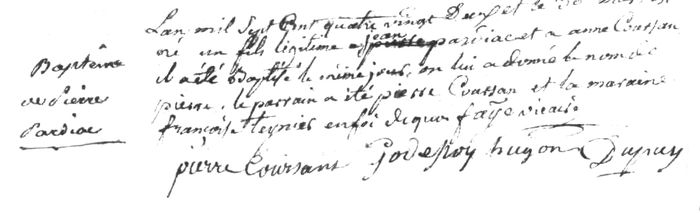 Baptême
de Pierre
Pardiac
L'an mil sept cent quatre vingt deux et le
né un fils légitime a jean pardiac et a anne Coussan
il a été baptisé le même jour, on lui a donné le nom de
pierre, le parrain a été pierre Coussan et la maraine
françoise teynies en foi de quoi faye vicaire
pierre Coursans Godefroy hugon Dupuy